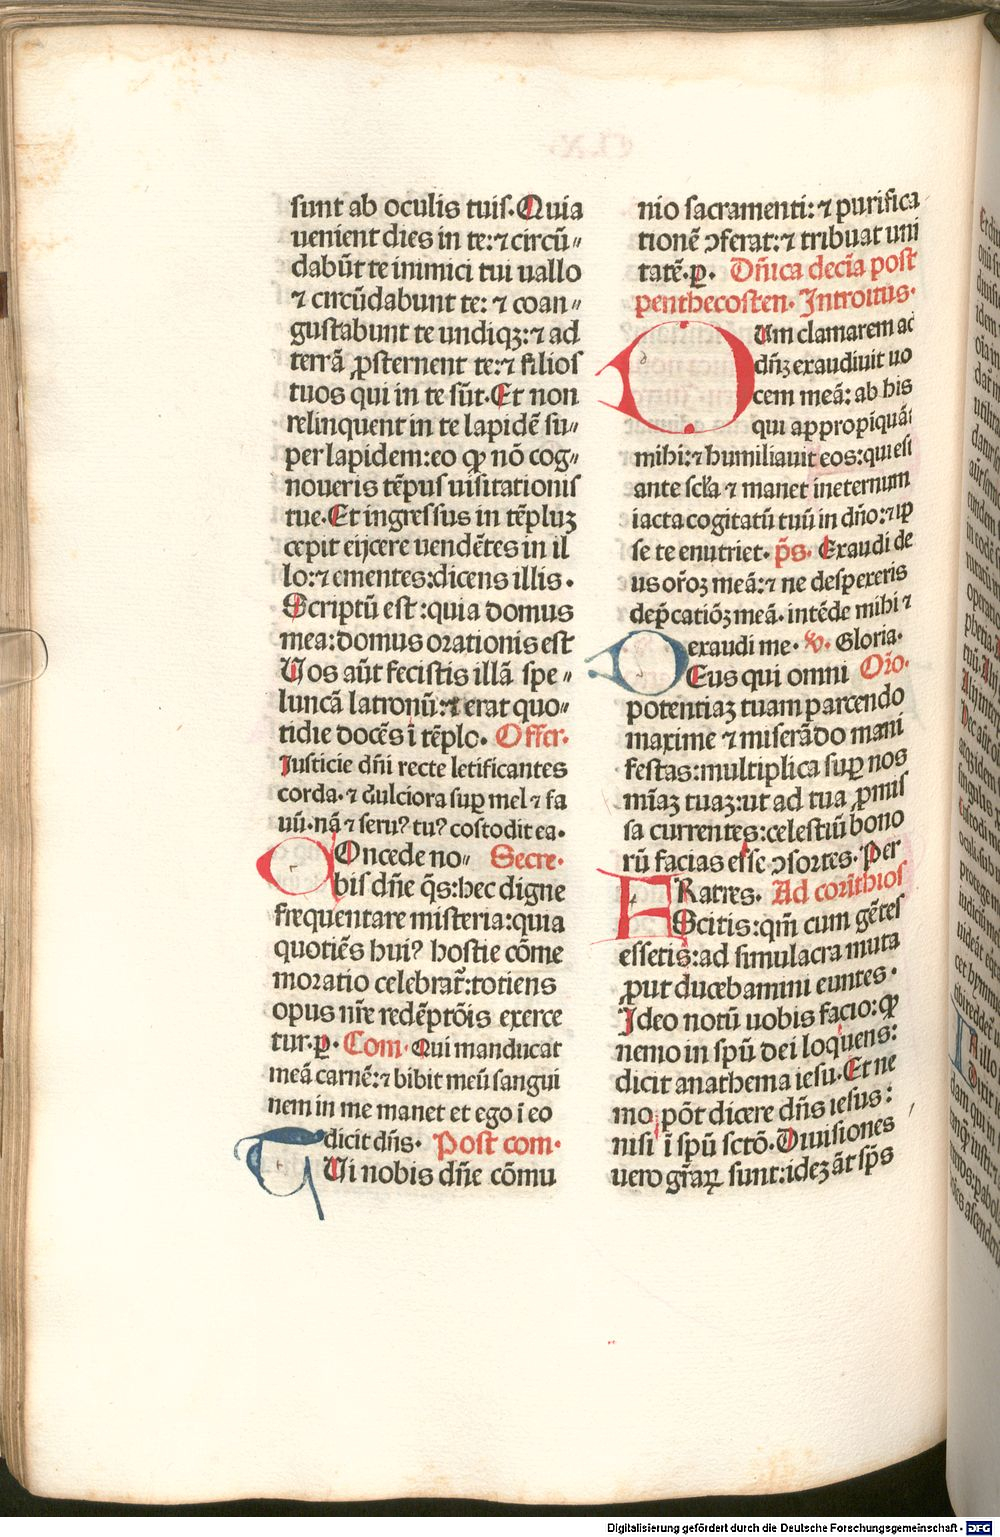 sunt ab oculis tuis. Quia
uenient dies in te: ⁊ circū〃
dabūt te inimici tui uallo
⁊ circūdabunt te: ⁊ coan〃
gustabunt te undiqꝫ: ⁊ ad
terrā ꝓsternent te: ⁊ filios
tuos qui in te sūt. Et non
relinquent in te lapidē su〃
per lapidem: eo ꝙ nō cog〃
noueris tēpus uisitationis
tue. Et ingressus in tēpluꝫ
cepit eijcere uendētes in il
lo: ⁊ ementes: dicens illis.
Scriptū est: quia domus
mea: domus orationis est
Uos aūt fecistis illā spe〃
luncā latronū: ⁊ erat quo〃
tidie docēs ī tēplo. Offer.
Iusticie dn̄i recte letificantes
corda. ⁊ dulciora suꝑ mel ⁊ fa
uū. nā ⁊ seruꝰ tuꝰ costodit ea.
COncede no〃 Secre.
bis dn̄e q̄s: hec digne
frequentare misteria: quia
quotiēs huiꝰ hostie cōme
moratio celebrat̄: totiens
opus nr̄e redēptōis exerce
tur. ꝑ. Com. Qui manducat
meā carnē: ⁊ bibit meū sangui
nem in me manet et ego ī eo
dicit dn̄s. Post com.
TUi nobis dn̄e cōmu
nio sacramenti: ⁊ purifica
tionē ↄferat: ⁊ tribuat uni
tatē. ꝑ. Dn̄ica decīa post
penthecosten. Introitus.
CUm clamarem ad
dn̄ꝫ exaudiuit uo
cem meā: ab his
qui appropiquāt
mihi: ⁊ humiliauit eos: qui est
ante sc̄la ⁊ manet ineternum
iacta cogitatū tuū in dn̄o: ⁊ ip
se te enutriet. p̄s. Exaudi de
us or̄oꝫ meā: ⁊ ne despexeris
dep̄catiōꝫ meā. intēde mihi ⁊
exaudi me. ℣. Gloria.
DEus qui omni Or̄o.
potentiaꝫ tuam parcendo
maxime ⁊ miserādo mani
festas: multiplica suꝑ nos
mīaꝫ tuaꝫ: ut ad tua ꝓmis
sa currentes: celestiū bono
rū facias esse ↄsortes. Per
FRatres. Ad corīthios
Scitis: qm̄ cum gētes
essetis: ad simulacra muta
ꝓut ducebamini euntes.
Ideo notū uobis facio: ꝙ
nemo in spū dei loquens:
dicit anathema iesu. Et ne
mo pōt dicere dn̄s iesus:
nisi ī spū sctō. Diuisiones
uero gr̄aꝝ sunt: ideꝫ āt sp̄s
Digitalisierung gefördert durch die Deutsche Forschungsgemeinschaft - DFG